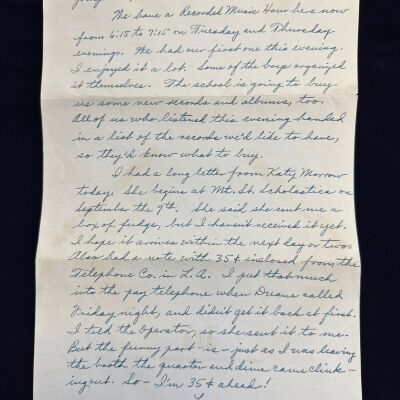 We have a Recorded Music Hour here now
from 6:15 to 7:15 on Tuesday and Thursday
evenings. We had our first one this evening.
I enjoyed it a lot. Some of the boys organized
it themselves. The school is going to buy
us some new records and albums, too.
All of us who listened this evening handed
in a list of the records we'd like to have,
so they'd know what to buy.
I had a long letter from Katy Morrow
today. She begins at Mt. St. Scholastica on
September the 9th. She said she sent me a
box of fudge, but I haven't received it yet.
I hope it arrives within the next day or two.
Also had a note with 35¢ inclosed from the
Telephone Co. in L.A. I put that much
into the pay telephone when Duane called
Friday night, and didn't get it back at first.
I told the operator, so she sent it to me.
But the funny part is - just as I was leaving
the booth the quarter and dime came clink-
ing out. So - I'm 35¢ ahead!